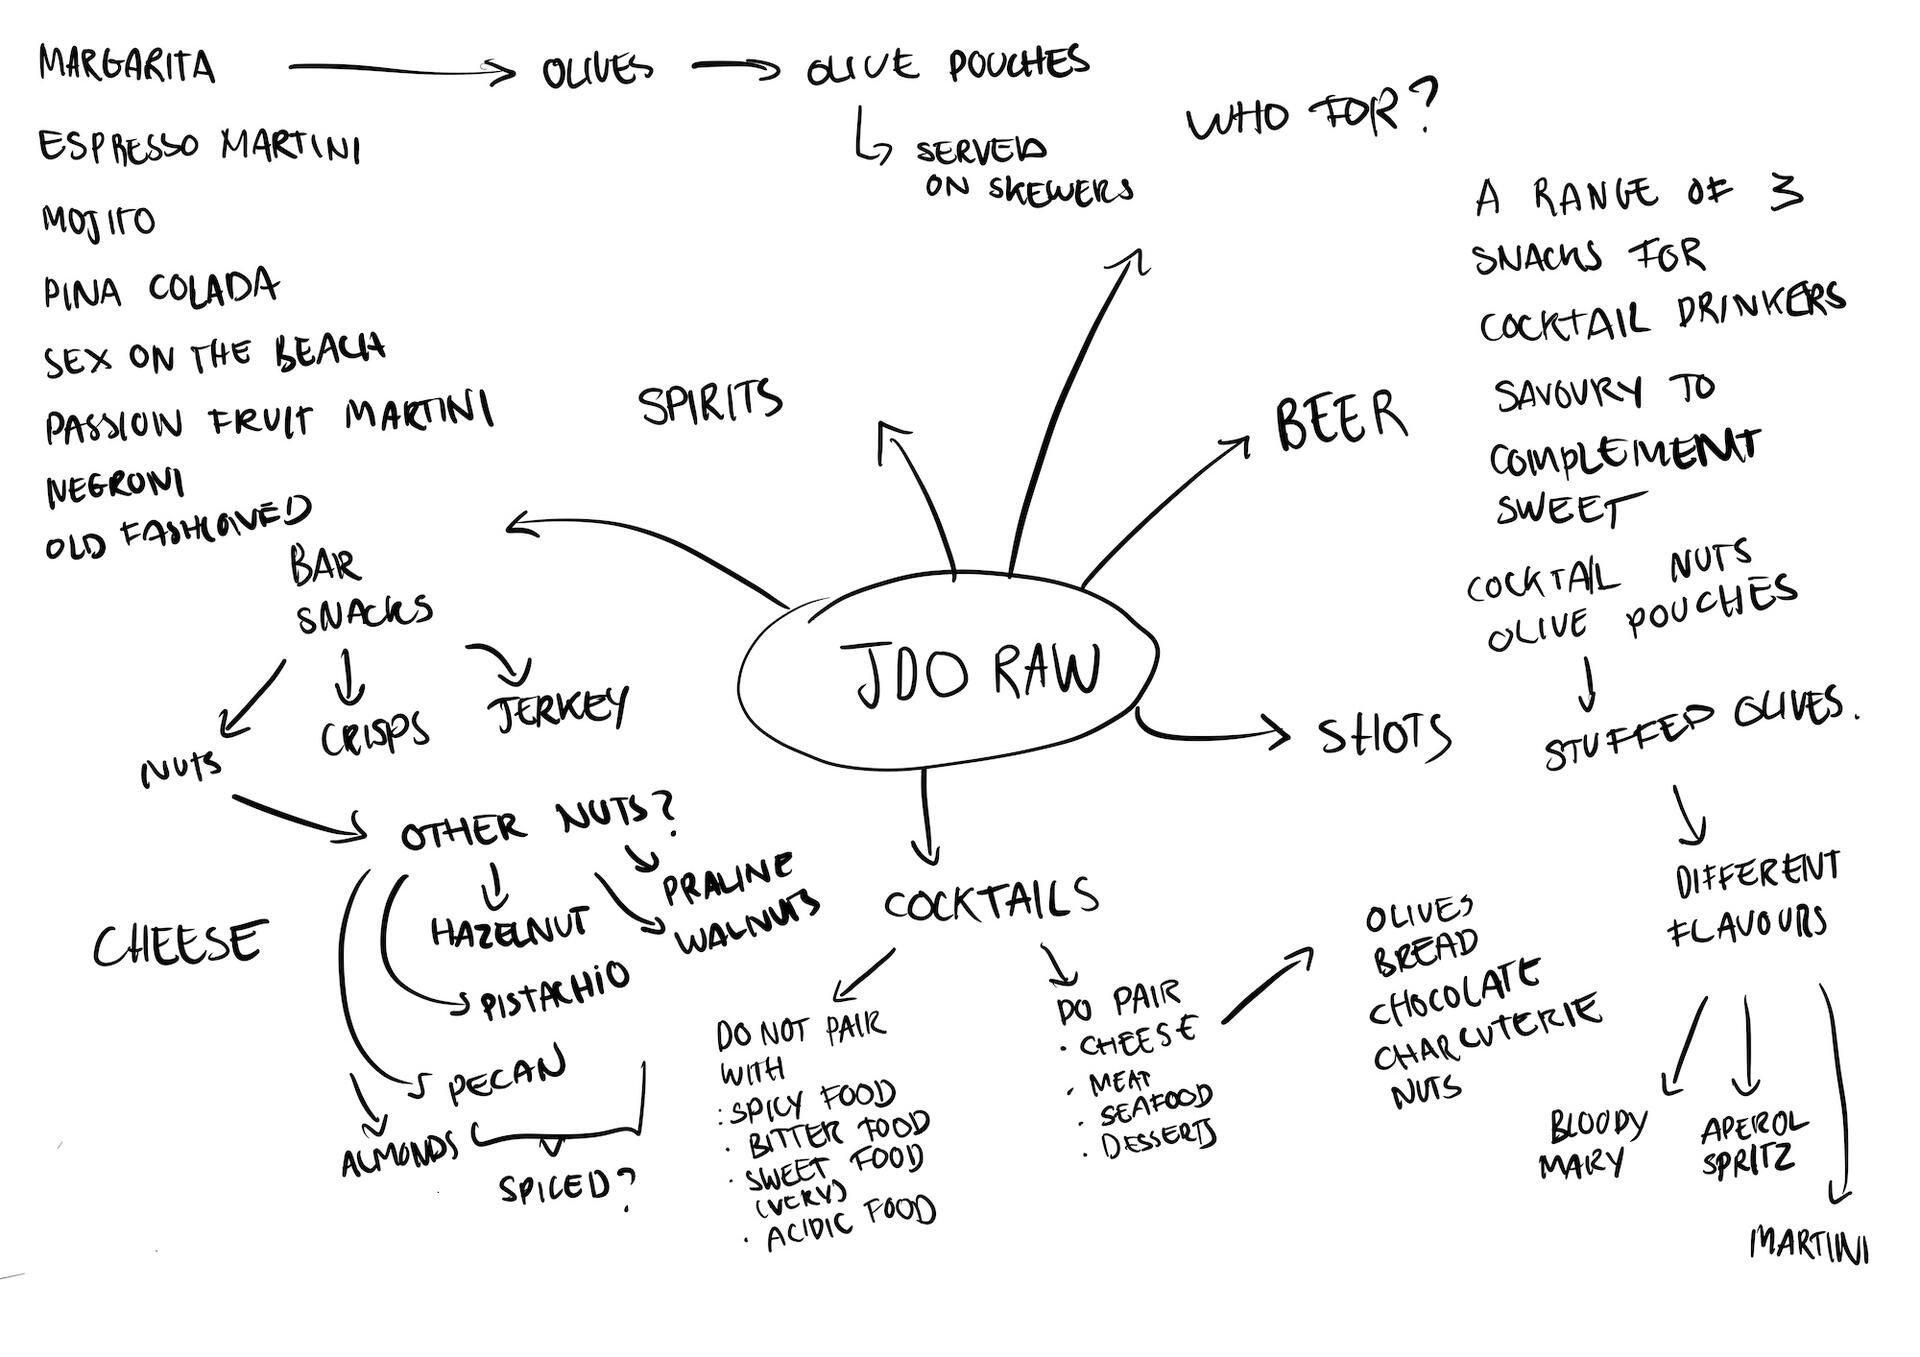 MARGARITA
OLIVES
OLIVE POUCHES
SERVED
ON SKEWERS
ESPRESSO MARTINI
MOJITO
PINA COLADA
SEX ON THE BEACH
PASSION FRUIT MARTINI
NEGRONI
OLD FASHIONED
SPIRITS
WHO FOR?
BEER
A RANGE OF 3
SNACKS FOR
COCKTAIL DRINKERS
SAVOURY TO
COMPLEMENT
SWEET
COCKTAIL NUTS
OLIVE POUCHES
STUFFED OLIVES.
DIFFERENT
FLAVOURS
BLOODY
MARY
APEROL
SPRITZ
MARTINI
JDO RAW
SHOTS
BAR
SNACKS
NUTS
CRISPS
JERKEY
OTHER NUTS?
PRALINE
WALNUTS
HAZELNUT
PISTACHIO
PECAN
ALMONDS
SPICED?
CHEESE
COCKTAILS
DO NOT PAIR
WITH
· SPICY FOOD
· BITTER FOOD
· SWEET FOOD
(VERY)
· ACIDIC FOOD
DO PAIR
· CHEESE
· MEAT
· SEAFOOD
· DESSERTS
OLIVES
BREAD
CHOCOLATE
CHARCUTERIE
NUTS